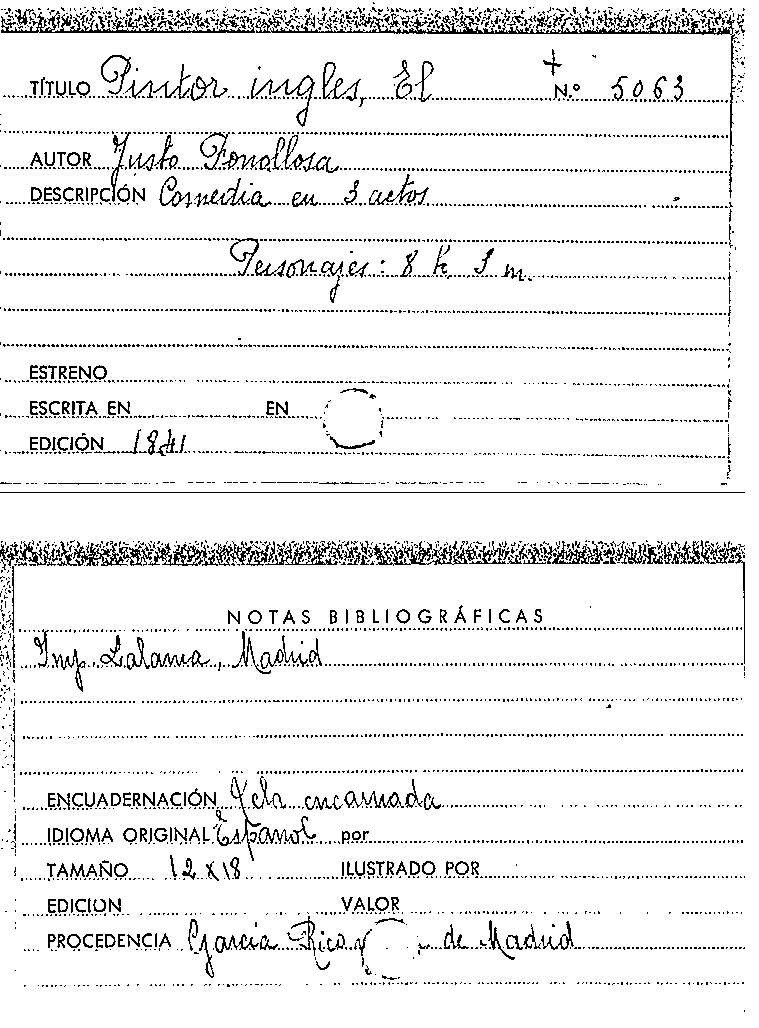 TÍTULO Pintor ingles, El N.º 5063
AUTOR Justo Fonollosa
DESCRIPCIÓN Comedia en 3 actos
Personajes: 8 h. 3 m.
ESTRENO
ESCRITA EN EN
EDICIÓN 1841
NOTAS BIBLIOGRÁFICAS
Imp. Lalama, Madrid
ENCUADERNACIÓN Tela encarnada
IDIOMA ORIGINAL Español por
TAMAÑO 12 x 18 ILUSTRADO POR
EDICION VALOR
PROCEDENCIA Garcia Rico y de Madrid